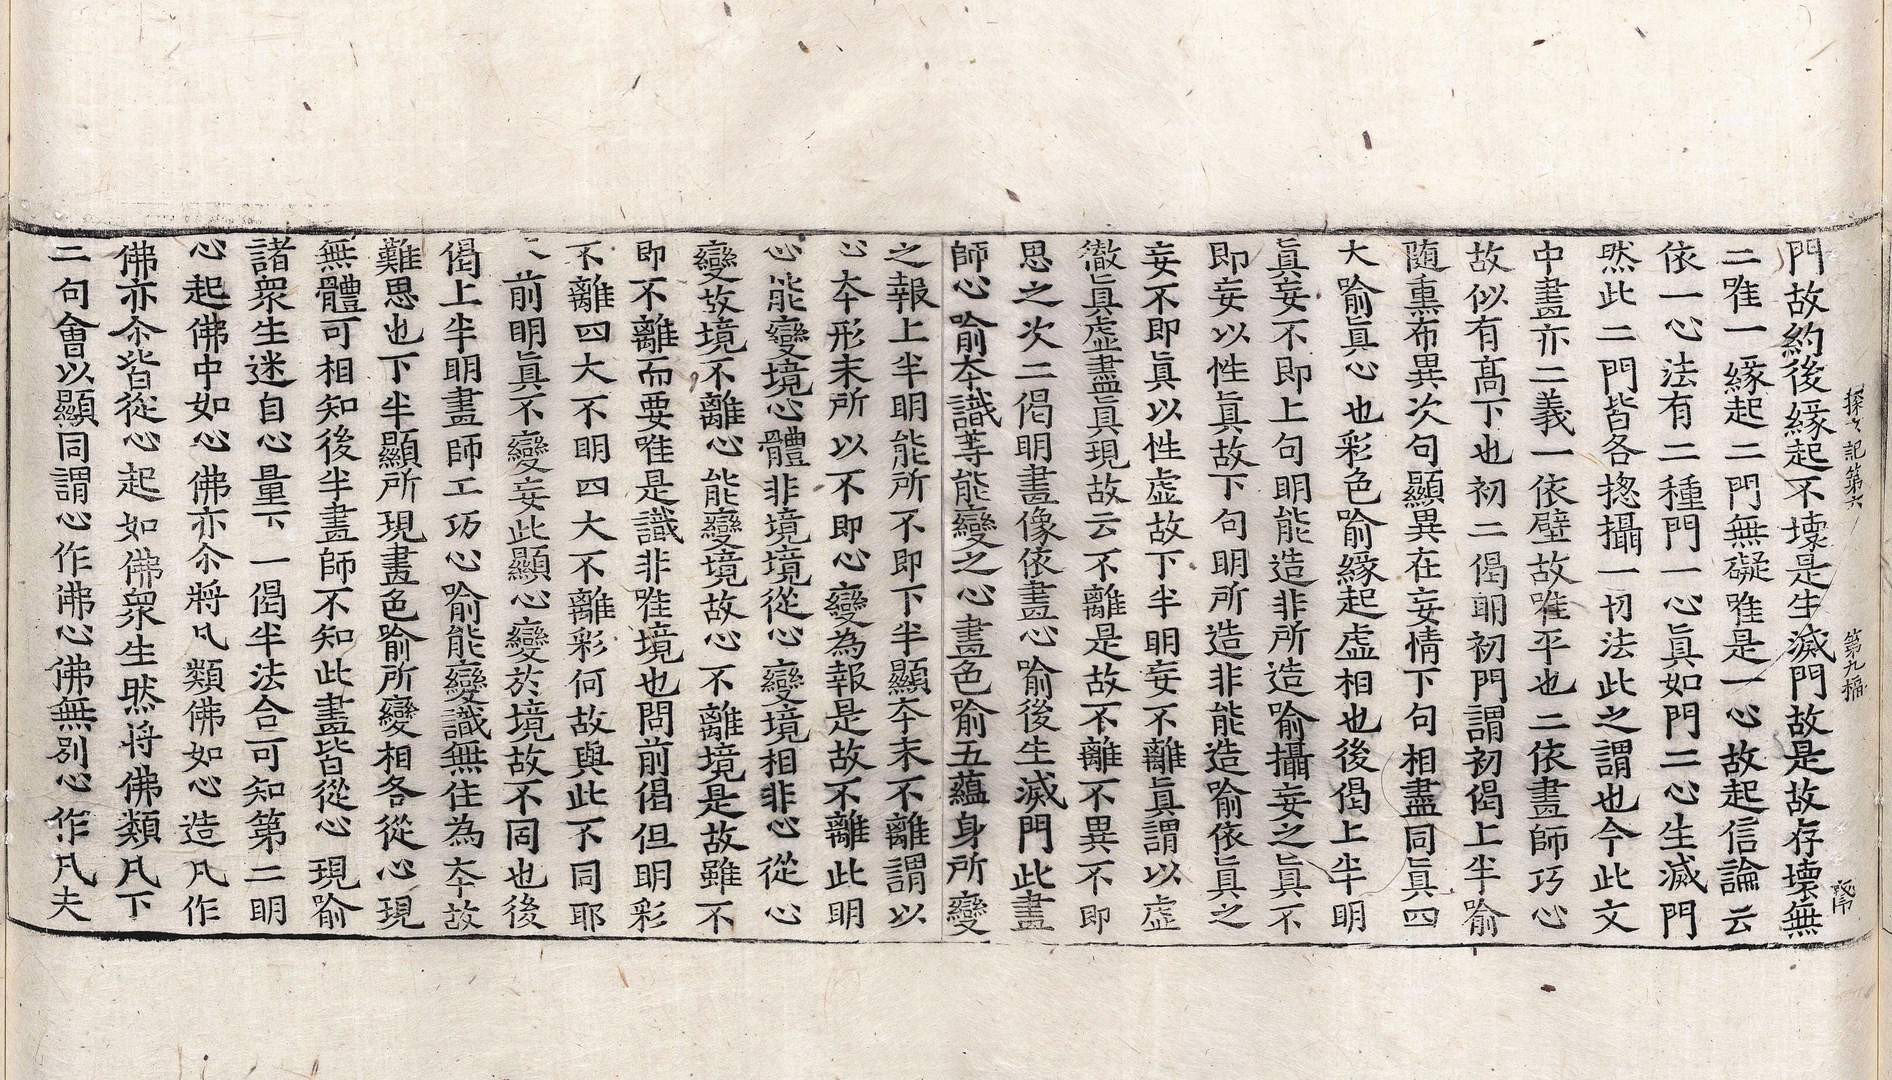 探玄記第六　第九幅
門故約後緣起不壞是生滅門故是故存壞無
二唯一緣起二門無礙唯是一心故起信論云
依一心法有二種門一心真如門二心生滅門
然此二門皆各揔攝一切法此之謂也今此文
中畫亦二義一依壁故唯平也二依畫師巧心
故似有高下也初二偈明初門謂初偈上半喻
随熏布異次句顯異在妄情下句相盡同真四
大喻真心也彩色喻緣起虛相也後偈上半明
真妄不即上句明能造非所造喻攝妄之真不
即妄以性真故下句明所造非能造喻依真之
妄不即真以性虛故下半明妄不離真謂以虛
徹真虛盡真現故云不離是故不離不異不即
思之次二偈明畫像依畫心喻後生滅門此畫
師心喻夲識等能變之心畫色喻五蘊身所變
之報上半明能所不即下半顯夲末不離謂以
心夲形末所以不即心變為報是故不離此明
心能變境心體非境境從心變境相非心從心
變故境不離心能變境故心不離境是故雖不
即不離而要唯是識非唯境也問前偈但明彩
不離四大不明四大不離彩何故與此不同耶
前明真不變妄此顯心變於境故不同也後
偈上半明畫師工巧心喻能變識無住為夲故
難思也下半顯所現畫色喻所變相各從心現
無體可相知後半畫師不知此畫皆從心現喻
諸眾生迷自心量下一偈半法合可知第二明
心起佛中如心佛亦尒將凡類佛如心造凡作
佛亦尒皆從心起如佛眾生然將佛類凡下
二句會以顯同謂心作佛心佛無別心作凡夫